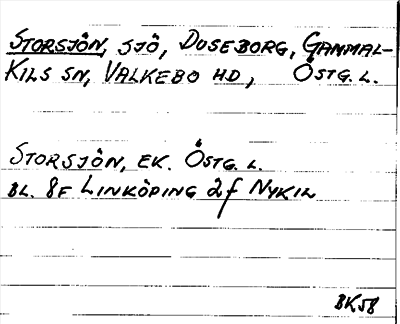 STORSJÖN, SJÖ, DUSEBORG, GAMMAL-
KILS SN, VALKEBO HD, ÖSTG. L.
STORSJÖN, EK. ÖSTG. L.
BL. 8F LINKÖPING 2f NYKIL
BK58